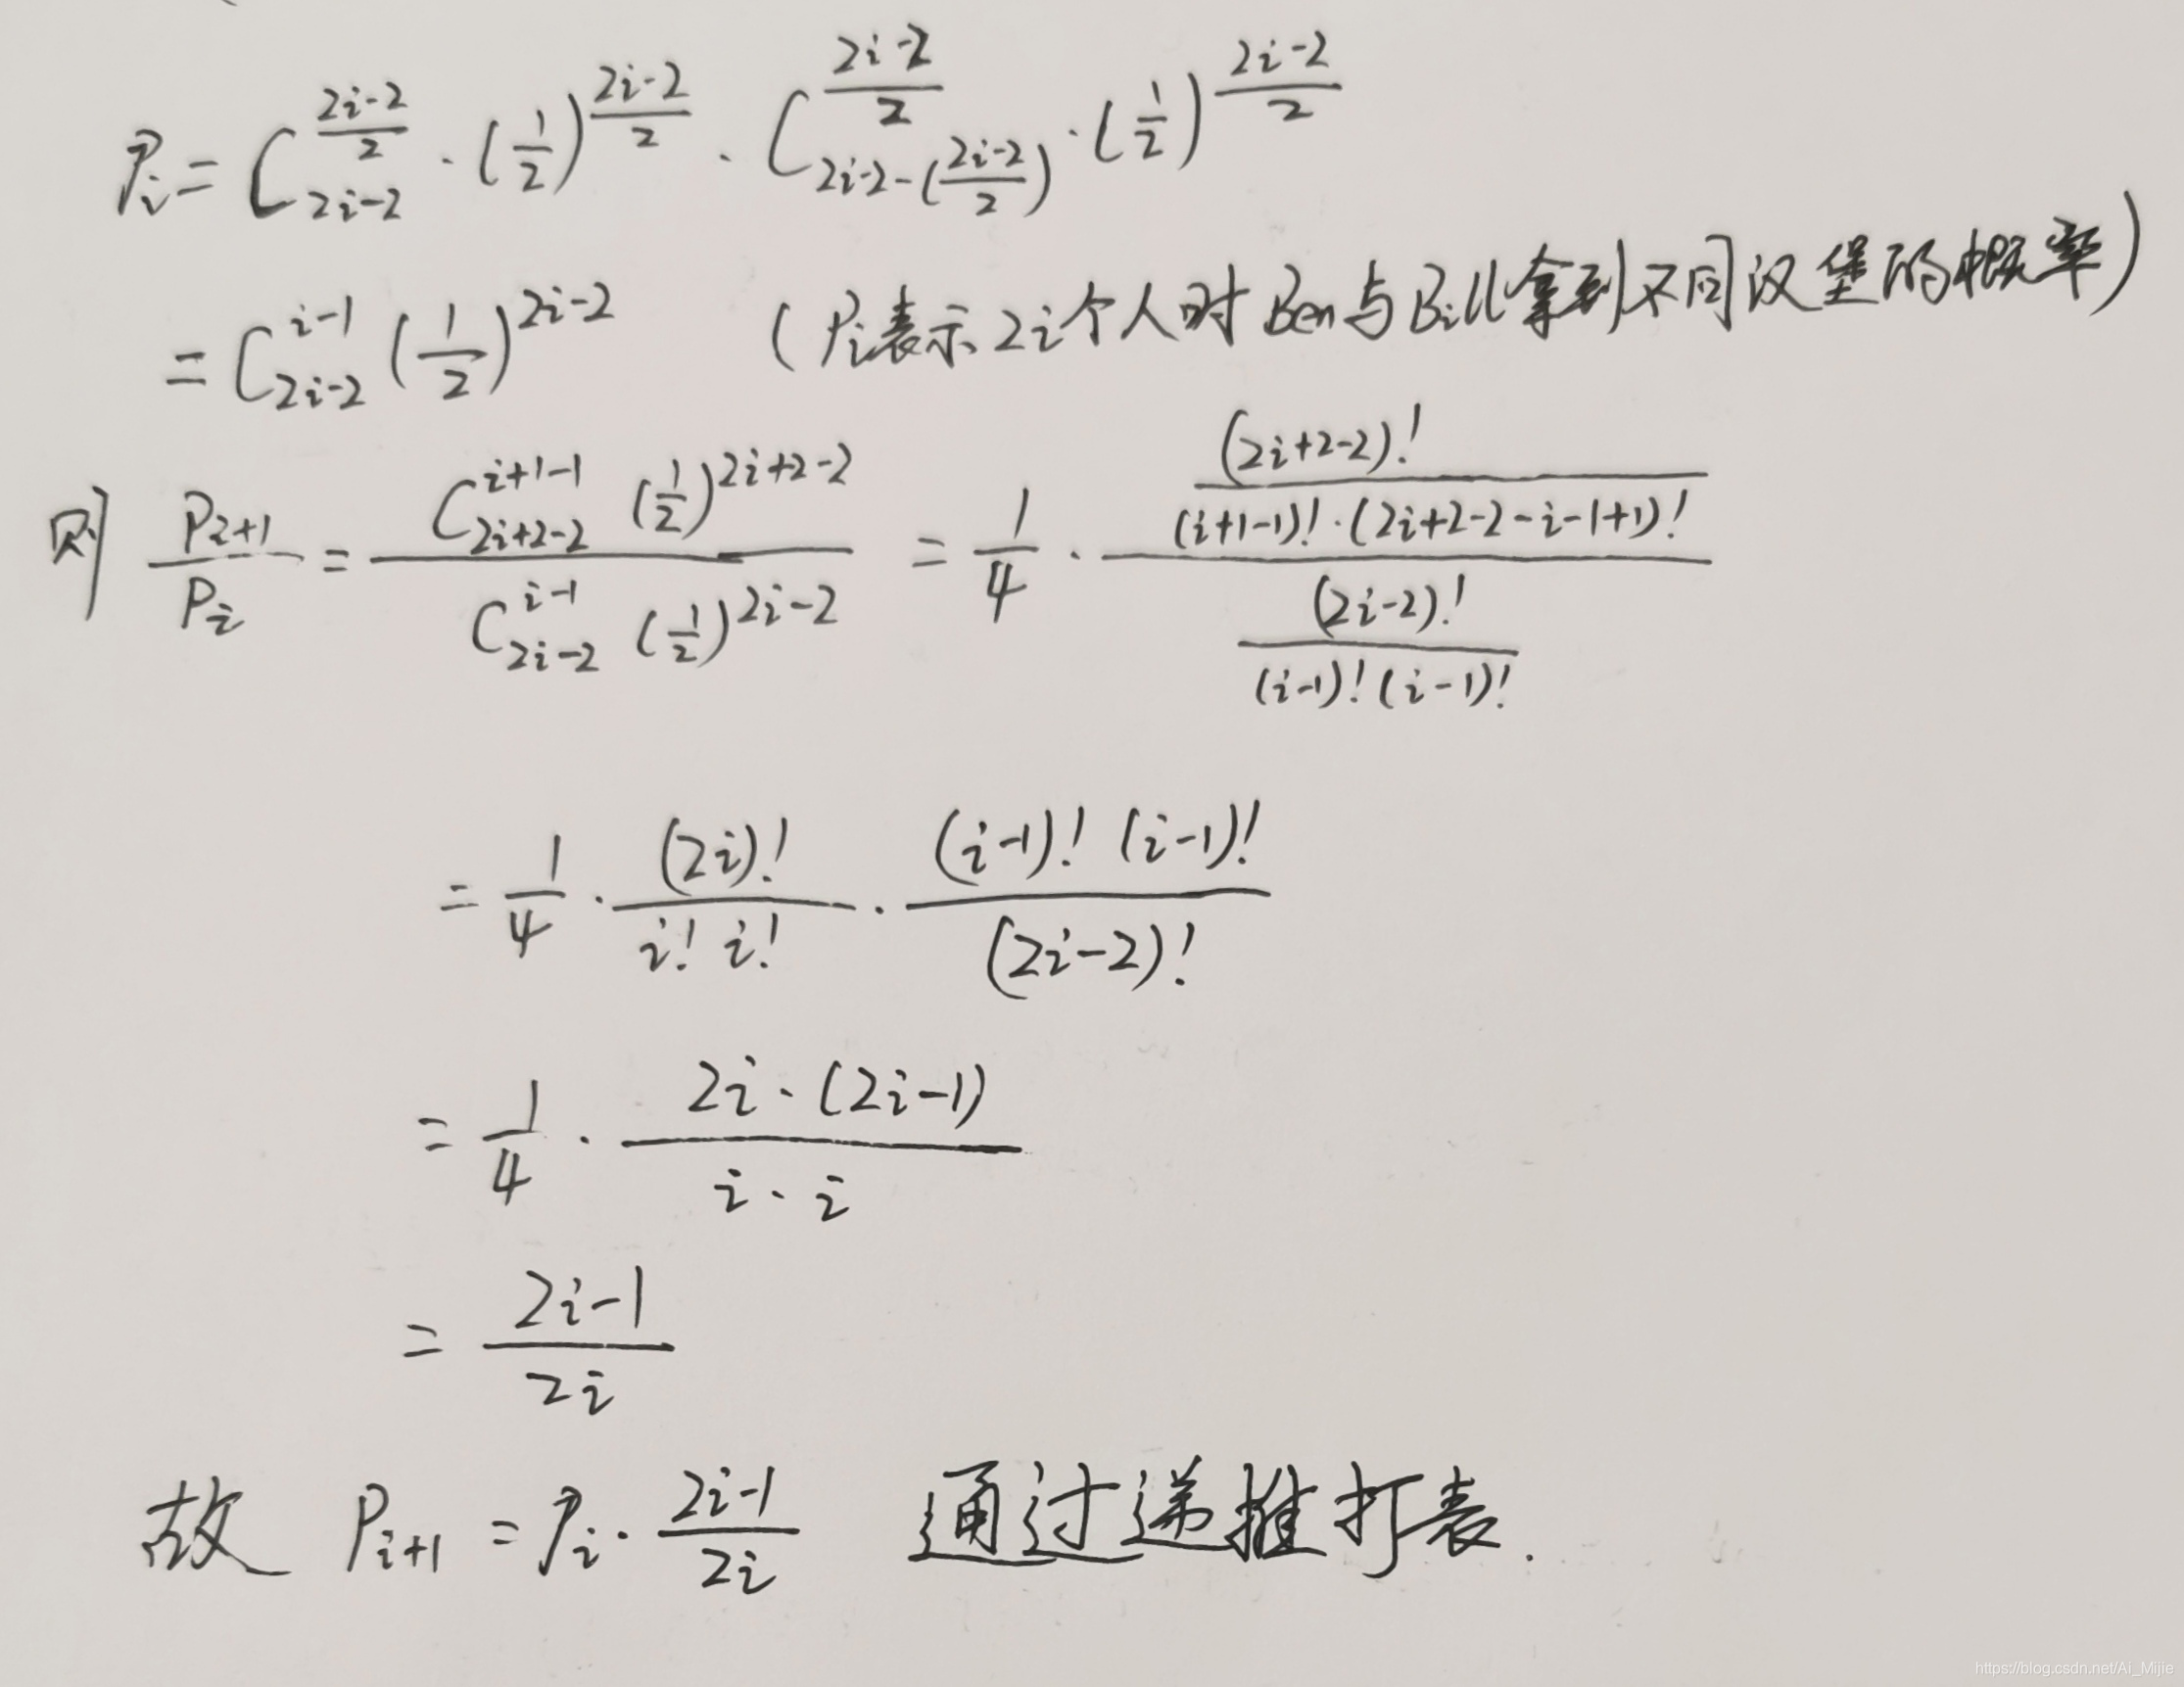 P_i = C_{2i-2}^{\frac{2i-2}{2}} · (\frac{1}{2})^{\frac{2i-2}{2}} · C_{2i-2-(\frac{2i-2}{2})}^{\frac{2i-2}{2}} · (\frac{1}{2})^{\frac{2i-2}{2}}
= C_{2i-2}^{i-1} (\frac{1}{2})^{2i-2} (P_i表示2i个人时Ben与Bill拿到不同汉堡的概率)
则 \frac{P_{i+1}}{P_i} = \frac{C_{2i+2-2}^{i+1-1} (\frac{1}{2})^{2i+2-2}}{C_{2i-2}^{i-1} (\frac{1}{2})^{2i-2}} = \frac{1}{4} · \frac{\frac{(2i+2-2)!}{(i+1-1)!·(2i+2-2-i-1+1)!}}{\frac{(2i-2)!}{(i-1)!(i-1)!}}
= \frac{1}{4} · \frac{(2i)!}{i! i!} · \frac{(i-1)! (i-1)!}{(2i-2)!}
= \frac{1}{4} · \frac{2i·(2i-1)}{i·i}
= \frac{2i-1}{2i}
故 P_{i+1} = P_i · \frac{2i-1}{2i} 通过递推打表.
https://blog.csdn.net/Ai_Mijie